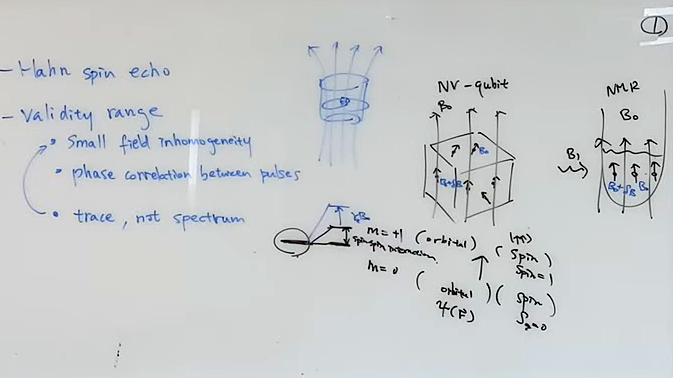 ①
- Hahn spin echo
- Validity range
• Small field inhomogeneity
• phase correlation between pulses
• trace, not spectrum
NV-qubit
B₀
B₀
B₀+δB
NMR
B₀
B₁
B₀+δB B₀
γB₀
m=+1 (orbital) (spin)
|↑↑⟩
spin=1
spin spin interaction
m=0 (orbital) (spin)
ψ(r⃗)